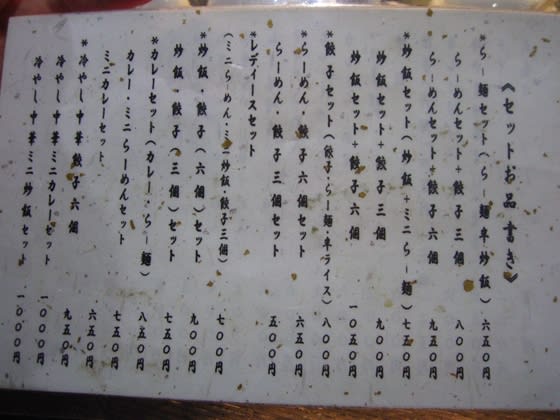 《セットお品書き》
*らー麺セット(らー麺半炒飯) 六五〇円
らーめんセット+餃子三個 八〇〇円
らーめんセット+餃子六個 九五〇円
*炒飯セット(炒飯+ミニらー麺) 七五〇円
炒飯セット+餃子三個 九〇〇円
炒飯セット+餃子六個 一〇五〇円
*餃子セット(餃子・らー麺・半ライス) 八〇〇円
*らーめん・餃子六個セット 六五〇円
らーめん・餃子三個セット 五〇〇円
*レディースセット
(ミニらーめん・ミニ炒飯・餃子三個) 七〇〇円
*炒飯・餃子(六個)セット 九〇〇円
炒飯・餃子(三個)セット 七五〇円
*カレーセット(カレー・らー麺) 八五〇円
カレー・ミニらーめんセット 七五〇円
ミニカレーセット 六五〇円
*冷やし中華餃子六個 九五〇円
冷やし中華ミニカレーセット 一〇〇〇円
冷やし中華ミニ炒飯セット 一〇〇〇円